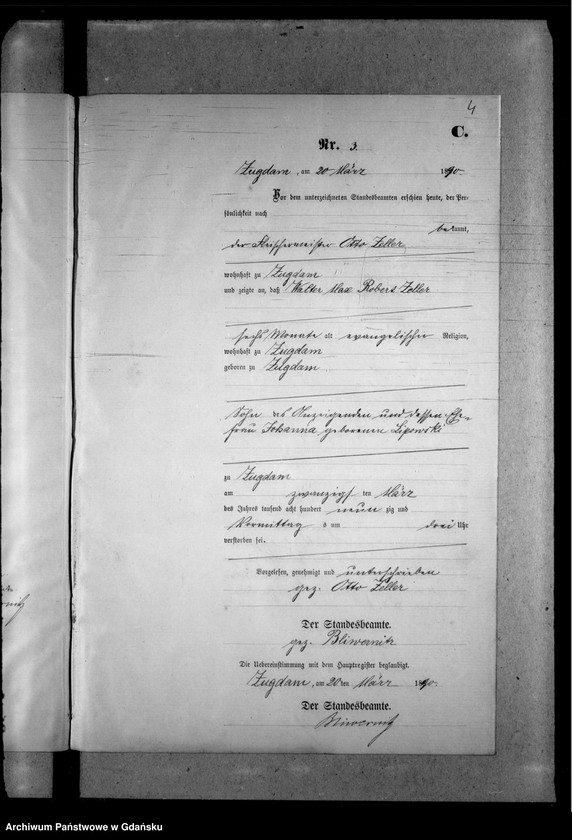 4
C.
Nr. 3.
Zugdam, am 20 März 1890.
Vor dem unterzeichneten Standesbeamten erschien heute, der Per-
sönlichkeit nach
bekannt,
der Fleischermeister Otto Zeller
wohnhaft zu Zugdam
und zeigte an, daß Walter Max Robert Zeller
sechs Monate alt evangelischer Religion,
wohnhaft zu Zugdam
geboren zu Zugdam
Sohn des Anzeigenden und dessen Ehe-
frau Johanna geborenen Lipowski
zu Zugdam
am zwanzigsten März
des Jahres tausend acht hundert neunzig und
Vormittags um drei Uhr
verstorben sei.
Vorgelesen, genehmigt und unterschrieben
gez. Otto Zeller
Der Standesbeamte.
gez. Bliwernitz
Die Uebereinstimmung mit dem Hauptregister beglaubigt.
Zugdam, am 20ten März 1890.
Der Standesbeamte.
Bliwernitz
Archiwum Państwowe w Gdańsku